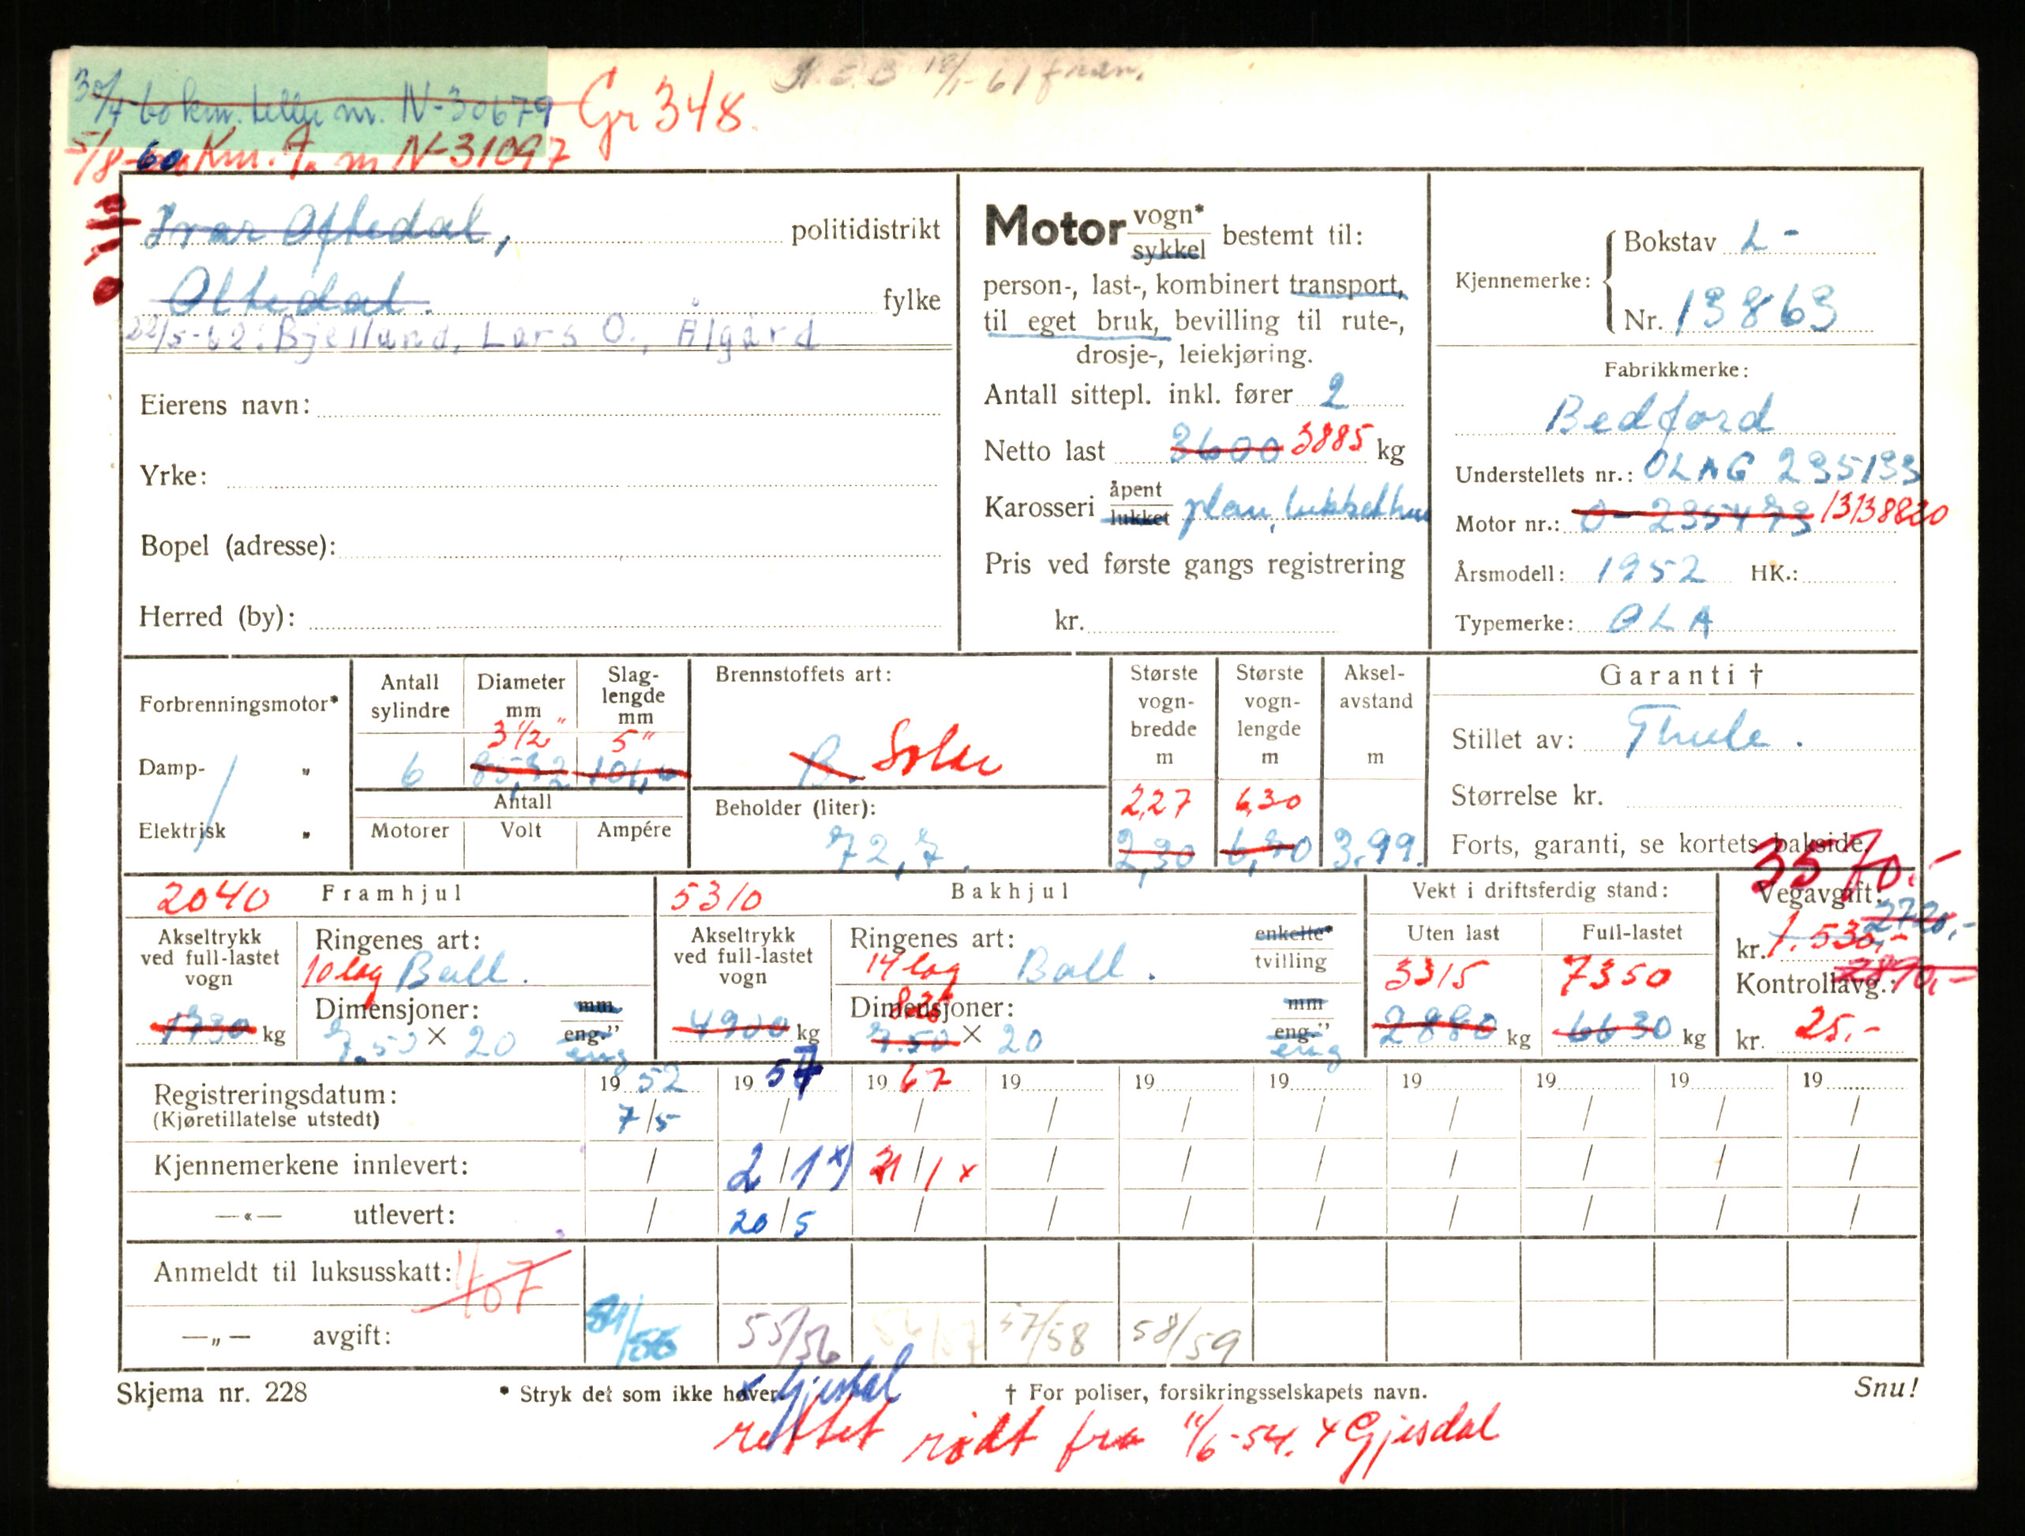 A.E.B 18/1-61 fræn.
30/4-60 km. teller nr. N-30679 Gr 348.
5/8-60 Km. T. nr N-31097
Ivar Oftedal, politidistrikt
Oltedal. fylke
22/5-62: Bjelland, Lars O., Ålgård
Eierens navn:
Yrke:
Bopel (adresse):
Herred (by):
Motor vogn* / sykkel bestemt til:
person-, last-, kombinert transport,
til eget bruk, bevilling til rute-,
drosje-, leiekjøring.
Antall sittepl. inkl. fører 2
Netto last 3600 3885 kg
Karosseri åpent / lukket plan, lukket hus
Pris ved første gangs registrering
kr.
Kjennemerke: Bokstav L-
Nr. 13863
Fabrikkmerke:
Bedford
Understellets nr.: OLAG 235133
Motor nr.: 0-235473 13138830
Årsmodell: 1952 HK.:
Typemerke: OLA
Forbrenningsmotor*
Damp- "
Elektrisk "
Antall sylindre 6
Diameter mm 3 1/2" 85,72
Slaglengde mm 5" 101,6
Antall
Motorer Volt Ampére
Brennstoffets art:
B. Solar
Beholder (liter):
72,7.
Største vognbredde m 2,27 2,30
Største vognlengde m 6,30 6,70
Akselavstand m 3.99.
Garanti †
Stillet av: Thule.
Størrelse kr.
Forts, garanti, se kortets bakside.
2040 Framhjul
Akseltrykk ved full-lastet vogn 1730 kg
Ringenes art: 10 lag Ball.
Dimensjoner: mm eng."
7.50 × 20 eng
5310 Bakhjul
Akseltrykk ved full-lastet vogn 4900 kg
Ringenes art: enkelte* tvilling
14 lag Ball.
Dimensjoner: mm eng."
825 7.50 × 20 eng
Vekt i driftsferdig stand:
Uten last Full-lastet
3315 7350
2880 kg 6630 kg
3570.-
Vegavgift:
2720,-
kr. 1.530,-
Kontrollavg.: 2890,-
kr. 25.-
Registreringsdatum: 19 52 19 57 19 67 19 19 19 19 19 19 19
(Kjøretillatelse utstedt) 7/5 / / / / / / / / /
Kjennemerkene innlevert: / 2/1 x) 31/1 x / / / / / / /
—«— utlevert: / 20/5 / / / / / / / /
Anmeldt til luksusskatt: 1/67
—„— avgift: 54/55 55/56 56/57 57/58 58/59
Skjema nr. 228 * Stryk det som ikke høver. x Gjesdal † For poliser, forsikringsselskapets navn. Snu!
rettet rødt fra 11/6-54. x Gjesdal